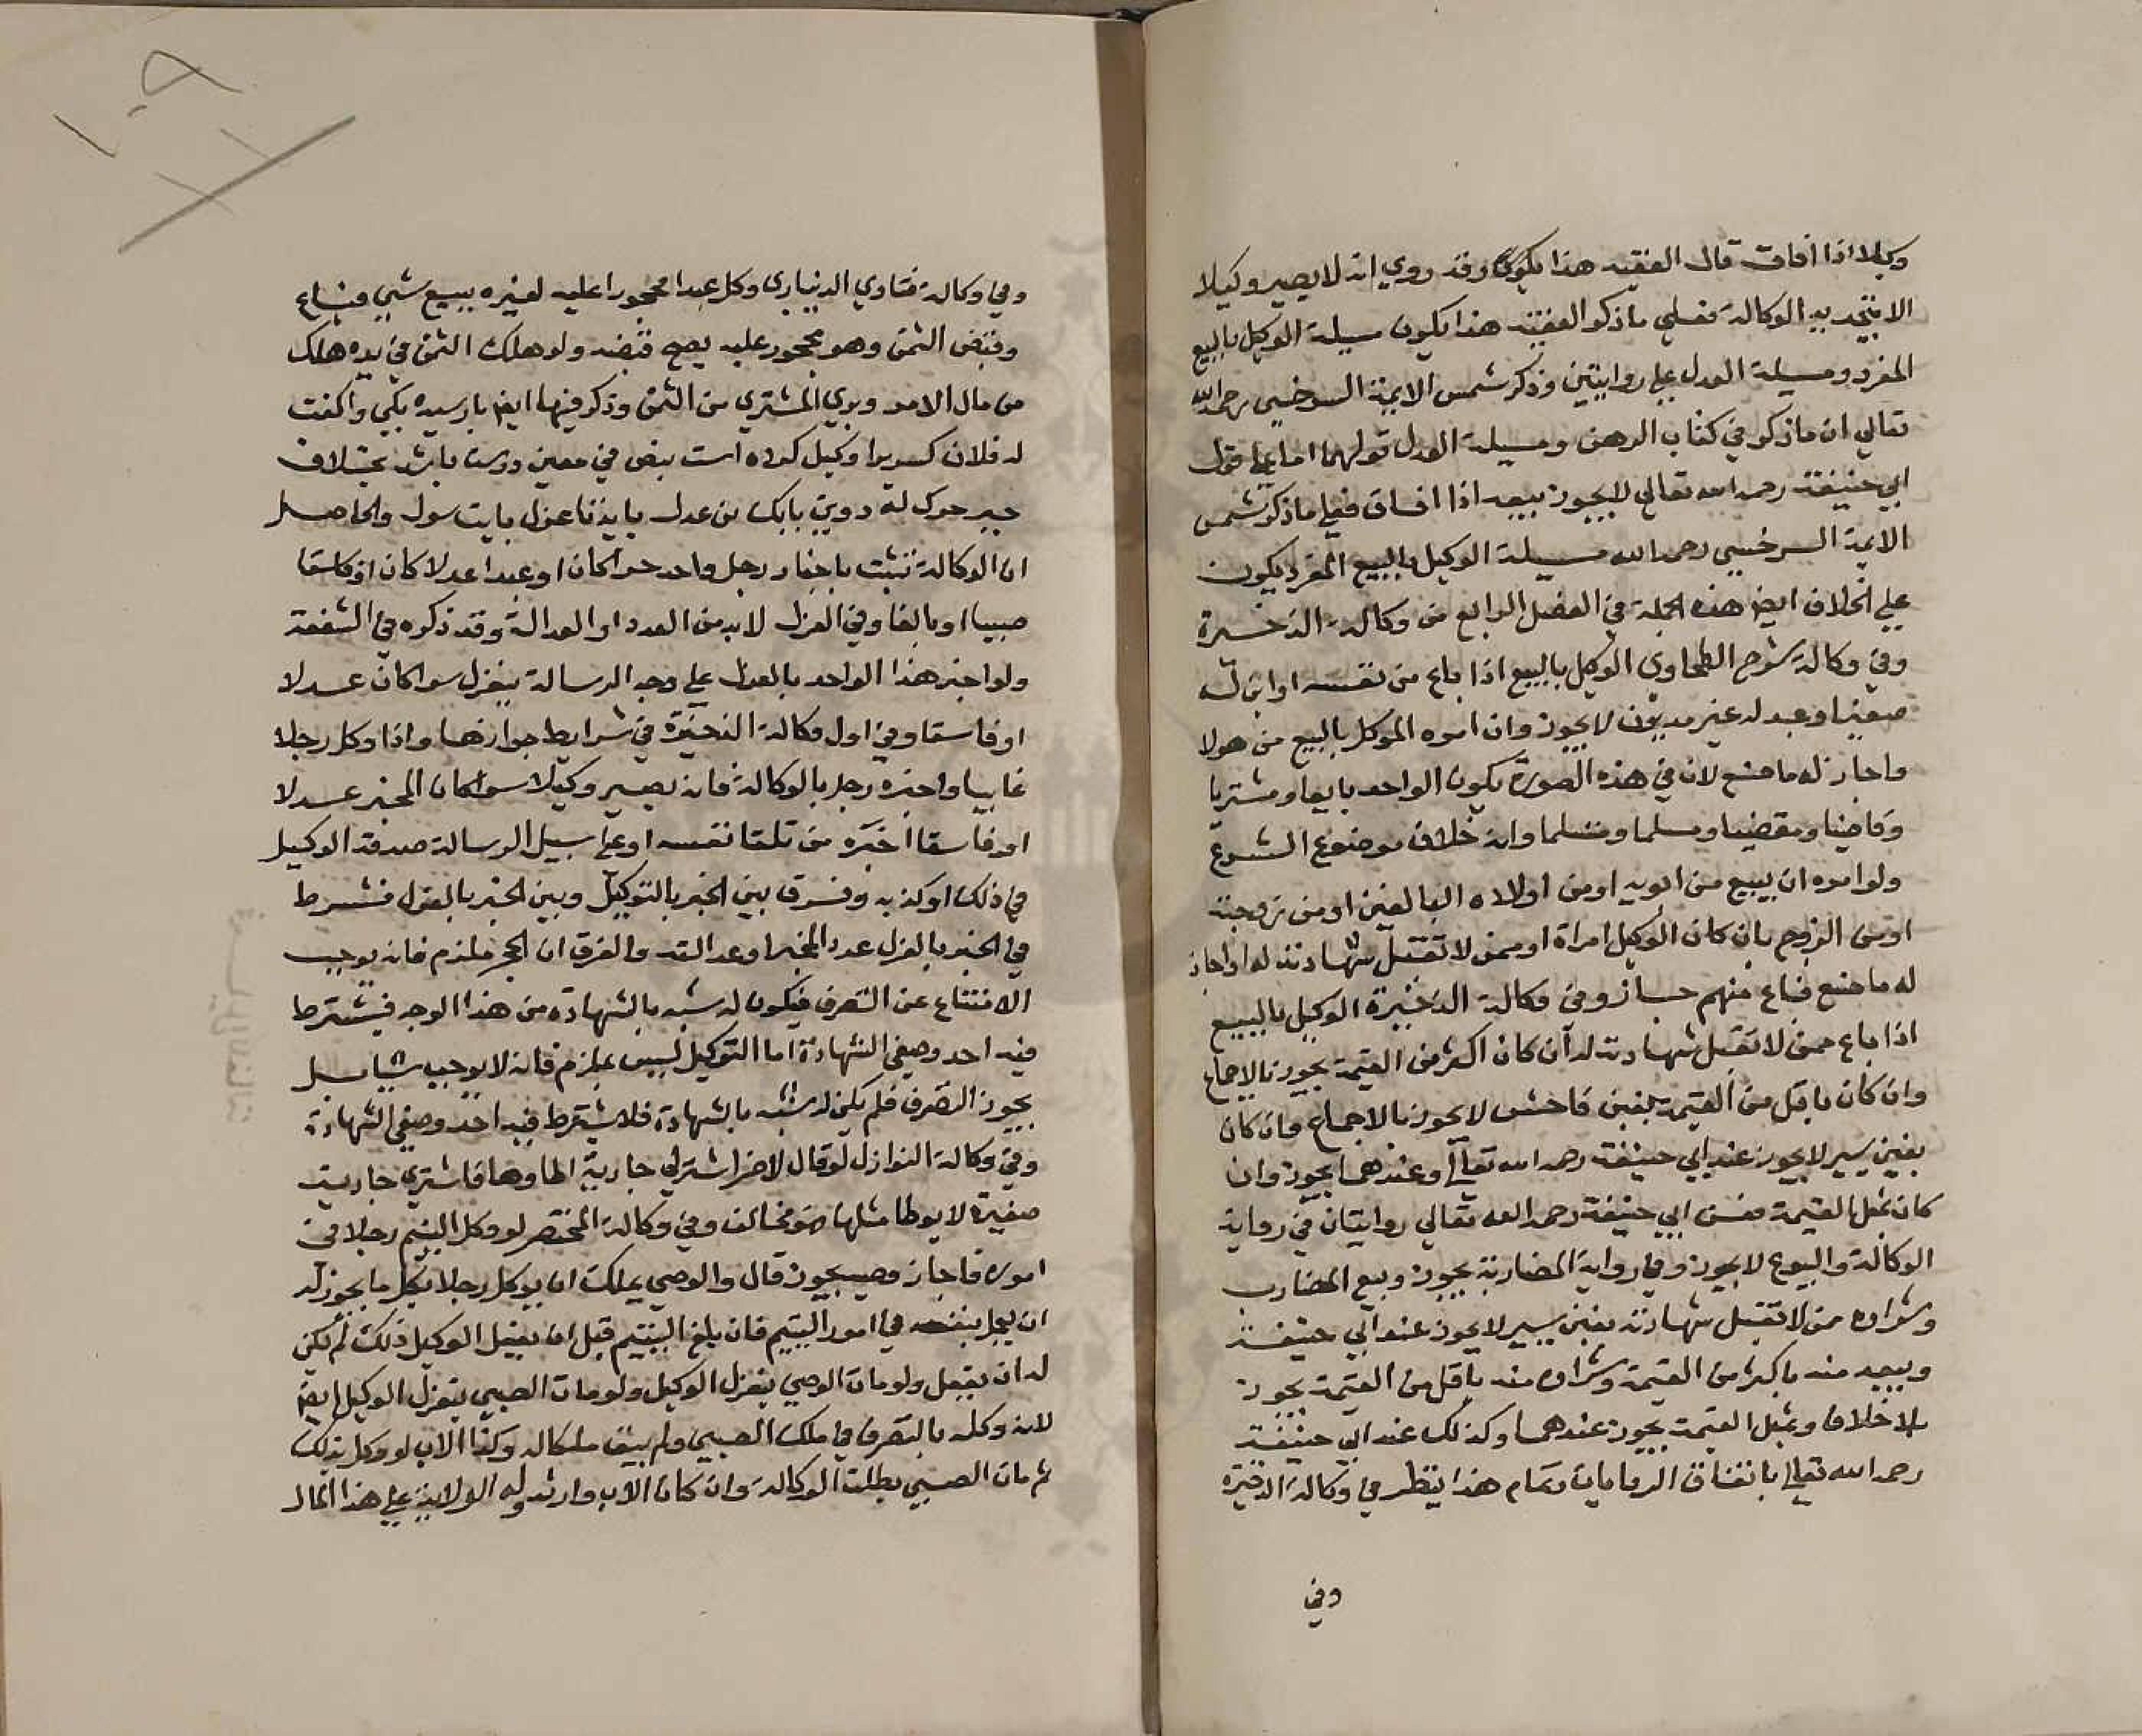 وكيلا اذا افاق قال الفقيه هذا يكون وقد روي انه لا يصير وكيلا
الا بتجديد الوكالة فعلي ما ذكر الفقيه هذا يكون مسيلة الوكيل بالبيع
المفرد ومسيلة العدل علي روايتين وذكر شمس الايمة السرخسي رحمه الله
تعالي ان ما ذكر في كتاب الرهن ومسيلة العدل قولهما اما علي قول
ابي حنيفة رحمه الله تعالي لا يجوز بيعه اذا افاق فعلي ما ذكر شمس
الايمة السرخسي رحمه الله مسيلة الوكيل بالبيع المفرد يكون
علي الخلاف ايضا هذه الجملة في الفصل الرابع من وكالة الذخيرة
وفي وكالة شرح الطحاوي الوكيل بالبيع اذا باع من نفسه او ابن له
صغير او عبد له غير مديون لا يجوز وان امره الموكل بالبيع من هولا
واجاز له ما صنع لان في هذه الصورة يكون الواحد بايعا ومشتريا
وقاضيا ومقضيا ومسلما ومتسلما وانه خلاف موضوع الشرع
ولو امره ان يبيع من ابويه او من اولاده البالغين او من زوجته
او من الزوج بان كان الوكيل امراة او ممن لا تقبل شهادته له او اجاز
له ما صنع فباع منهم جاز وفي وكالة الذخيرة الوكيل بالبيع
اذا باع ممن لا تقبل شهادته له ان كان اكثر من القيمة يجوز بالاجماع
وان كان باقل من القيمة بغبن فاحش لا يجوز بالاجماع وان كان
بغبن يسير لا يجوز عند ابي حنيفة رحمه الله تعالي وعندهما يجوز وان
كان بمثل القيمة فعن ابي حنيفة رحمه الله تعالي روايتان في رواية
الوكالة والبيوع لا يجوز وفي رواية المضاربة يجوز وبيع المضارب
وشراوه ممن لا تقبل شهادته بغبن يسير لا يجوز عند ابي حنيفة
وبيعه منه باكثر من القيمة وشراوه منه باقل من القيمة يجوز
بلا خلاف وبمثل القيمة يجوز عندهما وكذلك عند ابي حنيفة
رحمه الله تعالي باتفاق الروايات وتمام هذا ينظر في وكالة الذخيرة
وفي
١٠٩
وفي وكالة فتاوي الديناري وكل عبدا محجورا عليه لغيره ببيع شي فباع
وقبض الثمن وهو محجور عليه يصح قبضه ولو هلك الثمن في يده هلك
من مال الامر وبري المشتري من الثمن وذكر فيها ايضا
له فلان وكيل كرده است
ان الوكالة تثبت باخبار رجل واحد حرا كان او عبدا عدلا كان او فاسقا
صبيا او بالغا وفي العزل لا بد من العدد او العدالة وقد ذكره في الشفعة
ولو اخبر هذا الواحد بالعزل علي وجه الرسالة ينعزل سوا كان عدلا
او فاسقا وفي اول وكالة الذخيرة في شرايط جوازها واذا وكل رجلا
غايبا واخبره رجل بالوكالة فانه يصير وكيلا سوا كان المخبر عدلا
او فاسقا اخبره من تلقا نفسه او علي سبيل الرسالة صدقه الوكيل
في ذلك او كذبه وفرق بين الخبر بالتوكيل وبين الخبر بالعزل فشرط
في الخبر بالعزل عدد المخبر او عدالته والفرق ان الحجر ملزم فانه يوجب
الامتناع عن التصرف فيكون له شبه بالشهادة من هذا الوجه فيشترط
فيه احد وصفي الشهادة اما التوكيل ليس بملزم فانه لا يوجب شيا بل
يجوز التصرف فلم يكن له شبه بالشهادة فلا يشترط فيه احد وصفي الشهادة
وفي وكالة النوازل لو قال لاخر اشتر لي جارية اطاوها فاشتري جارية
صغيرة لا يوطا مثلها فهو مخالف وفي وكالة المختصر لو وكل اليتيم رجلا في
اموره فاجاز وصيه يجوز قال والوصي يملك ان يوكل رجلا بكل ما يجوز له
ان يعمل بنفسه في امور اليتيم فان بلغ اليتيم قبل ان يفعل الوكيل ذلك لم يكن
له ان يفعل ولو مات الوصي ينعزل الوكيل ولو مات الصبي ينعزل الوكيل ايضا
لانه وكله بالتصرف في ملك الصبي ولم يبق ملكا له وكذا الاب لو وكل بذلك
ثم مات الصبي بطلت الوكالة وان كان الاب وارثه وله الولاية علي هذا المال